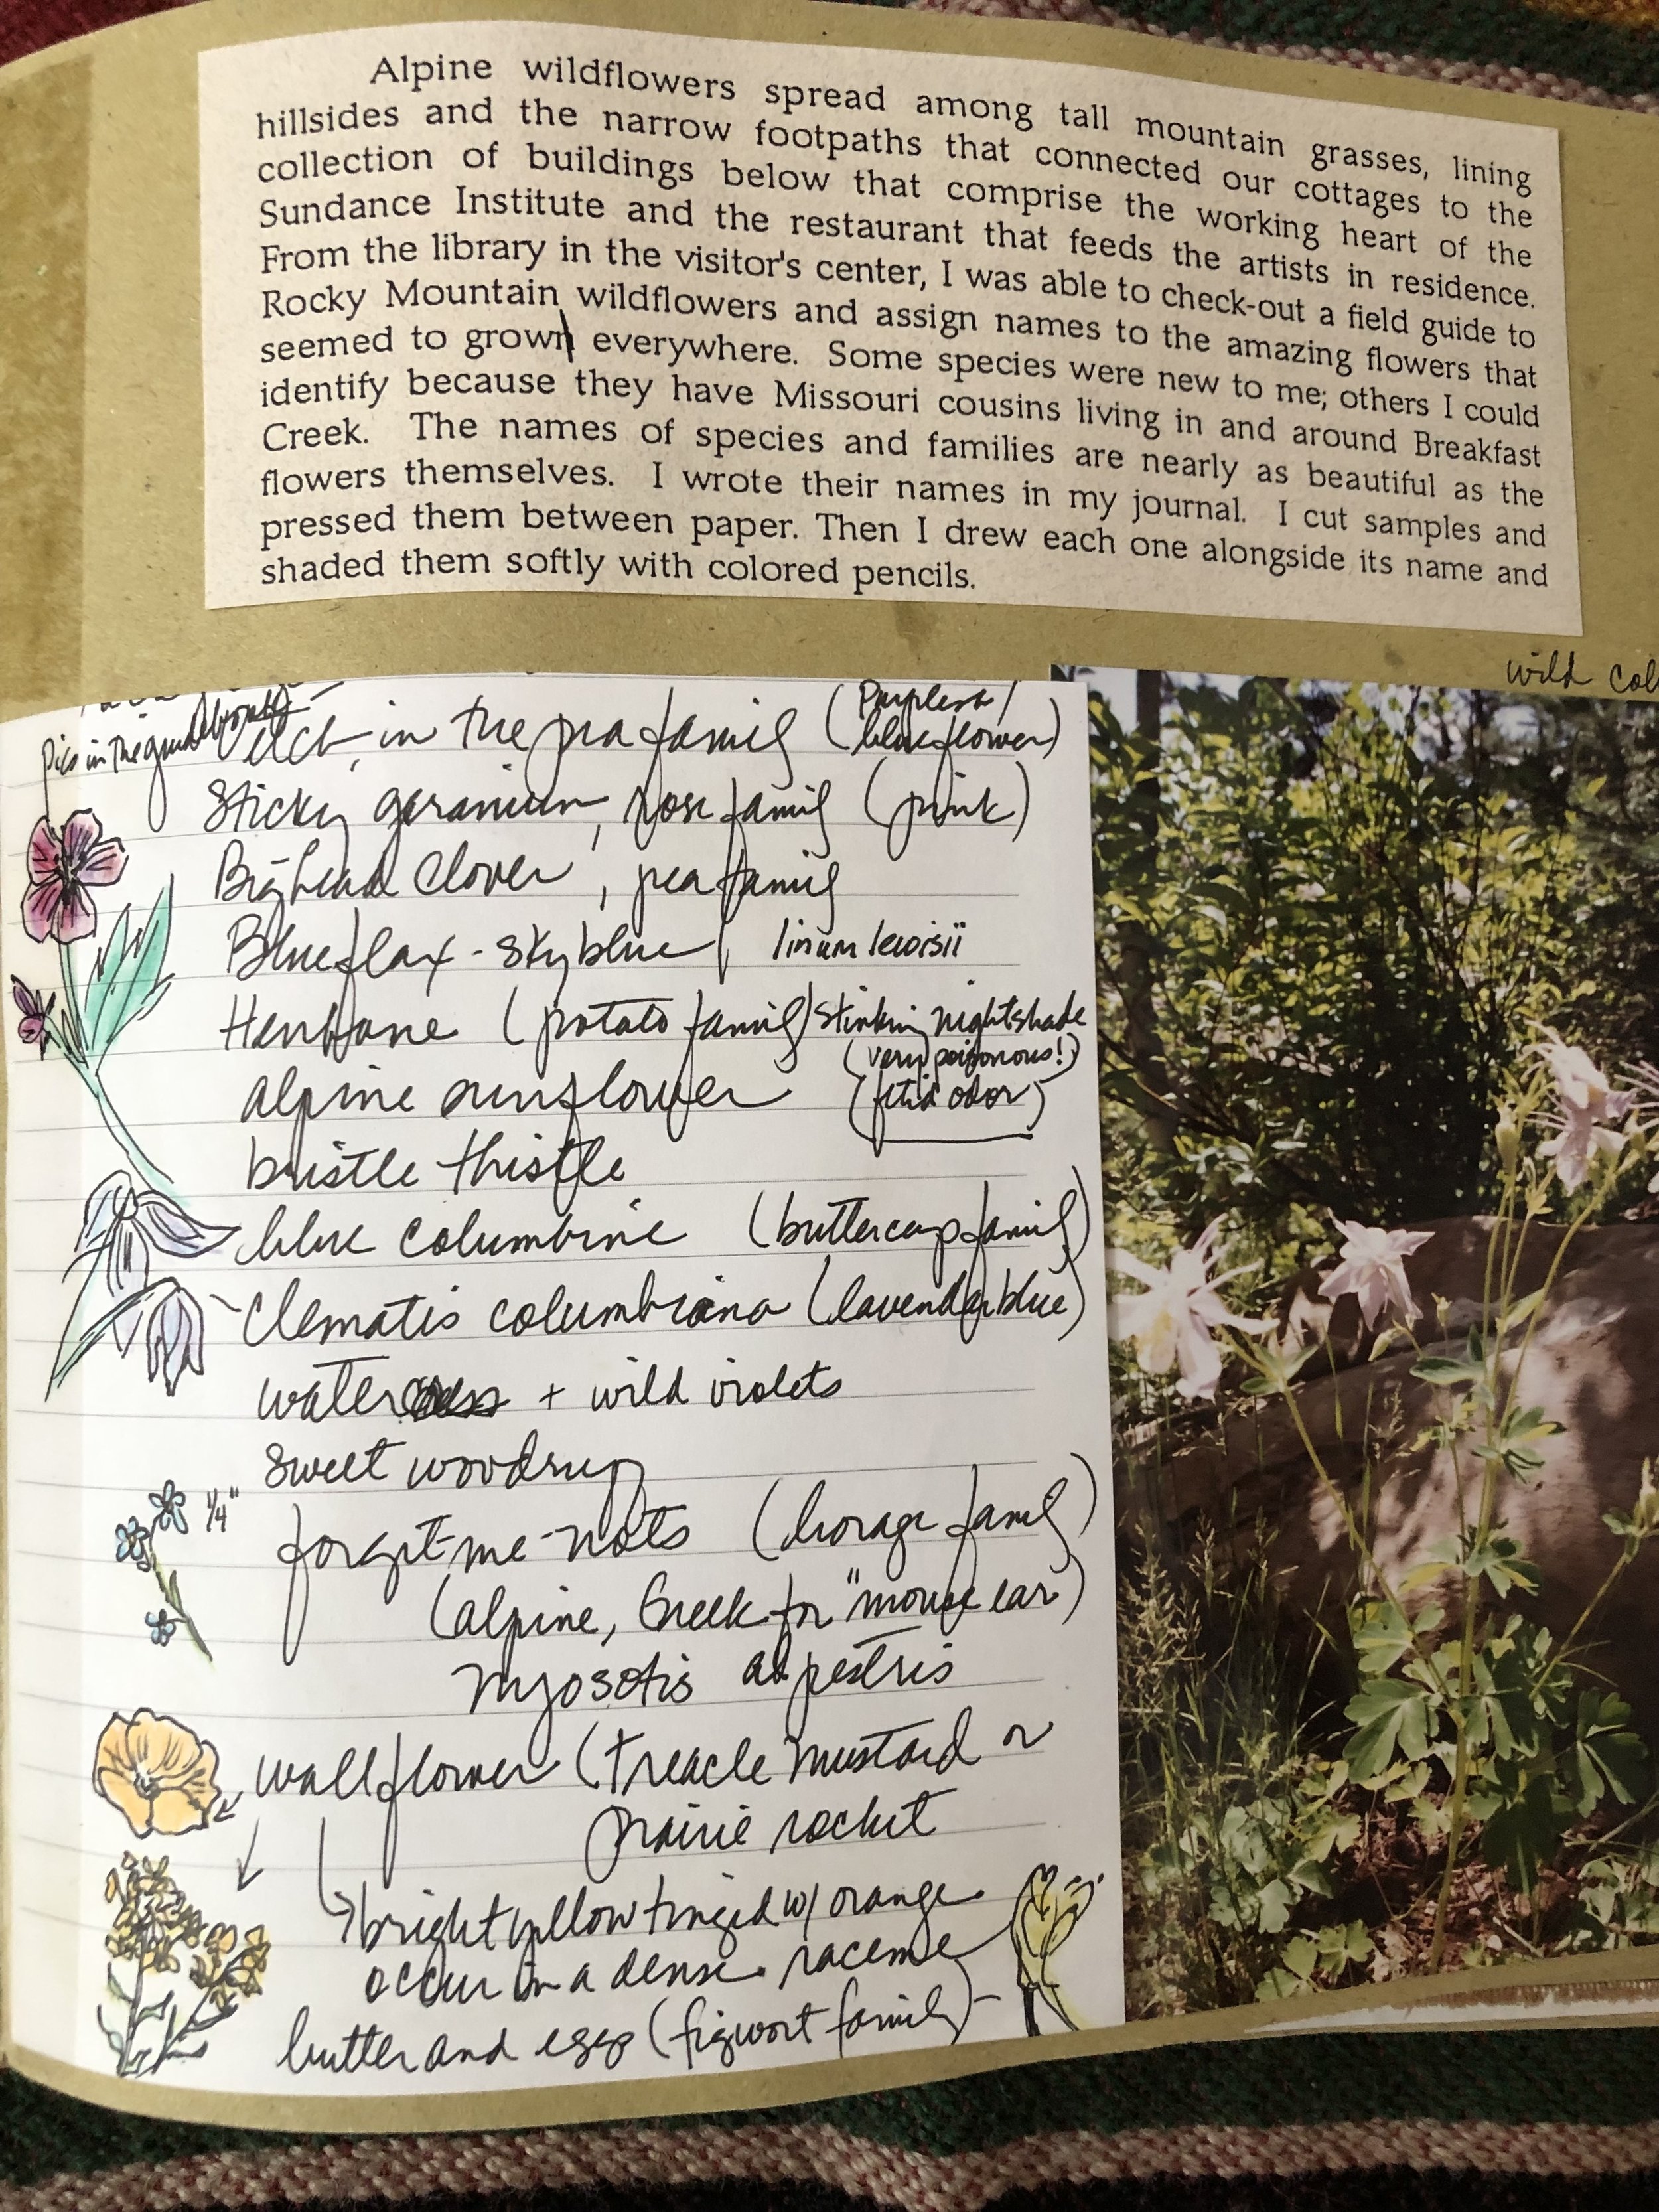 Alpine wildflowers spread among tall mountain grasses, lining
hillsides and the narrow footpaths that connected our cottages to the
collection of buildings below that comprise the working heart of the
Sundance Institute and the restaurant that feeds the artists in residence.
From the library in the visitor's center, I was able to check-out a field guide to
Rocky Mountain wildflowers and assign names to the amazing flowers that
seemed to grown everywhere. Some species were new to me; others I could
identify because they have Missouri cousins living in and around Breakfast
Creek. The names of species and families are nearly as beautiful as the
flowers themselves. I wrote their names in my journal. I cut samples and
pressed them between paper. Then I drew each one alongside its name and
shaded them softly with colored pencils.
wild col
Pics in the
vetch, in the pea family (Purplish/
blue flower)
Sticky geranium, rose family (pink)
Bighead Clover, pea family
Blue flax - sky blue, linum lewisii
Henbane (potato family/stinking nightshade
(very poisonous!)
alpine sunflower (fetid odor)
bristle thistle
blue columbine (buttercup family)
Clematis columbiana (lavender blue)
watercress + wild violets
sweet woodruff
1/4"
forget-me-nots (borage family)
(alpine, Greek for "mouse ear)
myosotis alpestris
wallflower (treacle mustard or
prairie rocket
bright yellow tinged w/ orange
occur in a dense raceme
butter and eggs (figwort family)